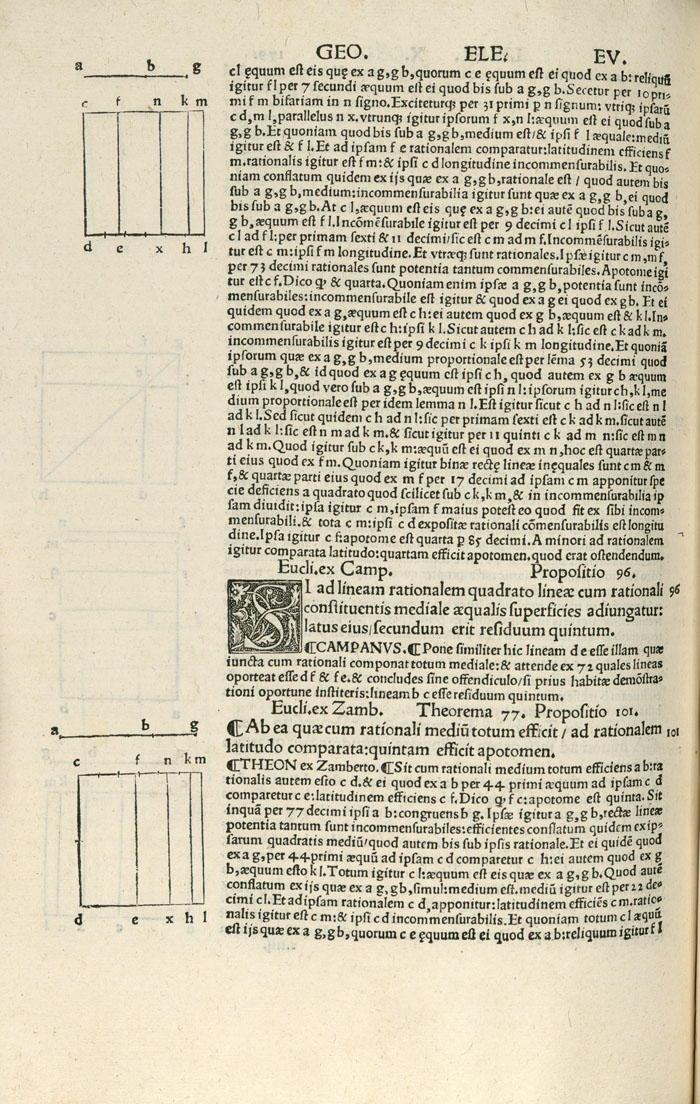 GEO. ELE. EV.
a b g
c f n k m
d e x h l
cl ęquum est eis quę ex a g, g b, quorum c e ęquum est ei quod ex a b: reliquũ
igitur f l per 7 secundi æquum est ei quod bis sub a g, g b. Secetur per 10 pri-
mi f m bifariam in n signo. Exciteturq; per 31 primi p n signum: vtriq; ipsarũ
c d, m l, parallelus n x. vtrunq; igitur ipsorum f x, n l: æquum est ei quod sub a
g, g b. Et quoniam quod bis sub a g, g b, medium est/ & ipsi f l æquale: mediũ
igitur est & f l. Et ad ipsam f e rationalem comparatur: latitudinem efficiens f
m. rationalis igitur est f m: & ipsi c d longitudine incommensurabilis. Et quo-
niam conflatum quidem ex ijs quæ ex a g, g b, rationale est / quod autem bis
sub a g, g b, medium: incommensurabilia igitur sunt quæ ex a g, g b, ei quod
bis sub a g, g b. At c l, æquum est eis quę ex a g, g b: ei autẽ quod bis sub a g,
g b, æquum est f l. Incõmẽsurabile igitur est per 9 decimi c l ipsi f l. Sicut autẽ
c l ad f l: per primam sexti & 11 decimi/ sic est c m ad m f. Incommẽsurabilis igi-
tur est c m: ipsi f m longitudine. Et vtræq; sunt rationales. Ipsæ igitur c m, m f,
per 73 decimi rationales sunt potentia tantum commensurabiles. Apotome igi
tur est c f. Dico q̃ & quarta. Quoniam enim ipsæ a g, g b, potentia sunt incõ-
mensurabiles: incommensurabile est igitur & quod ex a g ei quod ex g b. Et ei
quidem quod ex a g, æquum est c h: ei autem quod ex g b, æquum est & k l. In-
commensurabile igitur est c h: ipsi k l. Sicut autem c h ad k l: sic est c k ad k m.
incommensurabilis igitur est per 9 decimi c k ipsi k m longitudine. Et quoniã
ipsorum quæ ex a g, g b, medium proportionale est per lẽma 53 decimi quod
sub a g, g b, & id quod ex a g ęquum est ipsi c h, quod autem ex g b æquum
est ipsi k l, quod vero sub a g, g b, æquum est ipsi n l: ipsorum igitur c h, k l, me
dium proportionale est per idem lemma n l. Est igitur sicut c h ad n l: sic est n l
ad k l. Sed sicut quidem c h ad n l: sic per primam sexti est c k ad k m. sicut autẽ
n l ad k l: sic est n m ad k m. & sicut igitur per 11 quinti c k ad m n: sic est m n
ad k m. Quod igitur sub c k, k m: æquũ est ei quod ex m n, hoc est quartæ par-
ti eius quod ex f m. Quoniam igitur binæ rectę lineæ inęquales sunt c m & m
f, & quartæ parti eius quod ex m f per 17 decimi ad ipsam c m apponitur spe
cie deficiens a quadrato quod scilicet sub c k, k m, & in incommensurabilia ip
sam diuidit: ipsa igitur c m, ipsam f maius potest eo quod fit ex sibi incom-
mensurabili. & tota c m: ipsi c d expositæ rationali cõmensurabilis est longitu
dine. Ipsa igitur c f: apotome est quarta p 85 decimi. A minori ad rationalem
igitur comparata latitudo: quartam efficit apotomen. quod erat ostendendum.
Eucli. ex Camp. Propositio 96.
SI ad lineam rationalem quadrato lineæ cum rationali 96
constituentis mediale æqualis superficies adiungatur:
latus eius/ secundum erit residuum quintum.
¶CAMPANVS. ¶Pone similiter hic lineam d e esse illam quæ
iuncta cum rationali componat totum mediale: & attende ex 72 quales lineas
oporteat esse d f & f e. & concludes sine offendiculo/ si prius habitæ demõstra-
tioni oportune institeris: lineam b c esse residuum quintum.
Eucli. ex Zamb. Theorema 77. Propositio 101.
¶Ab ea quæ cum rationali mediũ totum efficit / ad rationalem 101
latitudo comparata: quintam efficit apotomen.
a b g
c f n k m
d e x h l
¶THEON ex Zamberto. ¶Sit cum rationali medium totum efficiens a b: ra
tionalis autem esto c d. & ei quod ex a b per 44 primi æquum ad ipsam c d
comparetur c e: latitudinem efficiens c f. Dico q̃ c f: apotome est quinta. Sit
inquã per 77 decimi ipsi a b: congruens b g. Ipsæ igitur a g, g b, rectæ lineæ
potentia tantum sunt incommensurabiles: efficientes conflatum quidem ex ip-
sarum quadratis mediũ/ quod autem bis sub ipsis rationale. Et ei quidẽ quod
ex a g, per 44 primi æquũ ad ipsam c d comparetur c h: ei autem quod ex g
b, æquum esto k l. Totum igitur c l: æquum est eis quæ ex a g, g b. Quod autẽ
conflatum ex ijs quæ ex a g, g b, simul: medium est. mediũ igitur est per 22 de-
cimi c l. Et ad ipsam rationalem c d, apponitur: latitudinem efficiẽs c m. ratio-
nalis igitur est c m: & ipsi c d incommensurabilis. Et quoniam totum c l æquũ
est ijs quæ ex a g, g b, quorum c e ęquum est ei quod ex a b: reliquum igitur f l